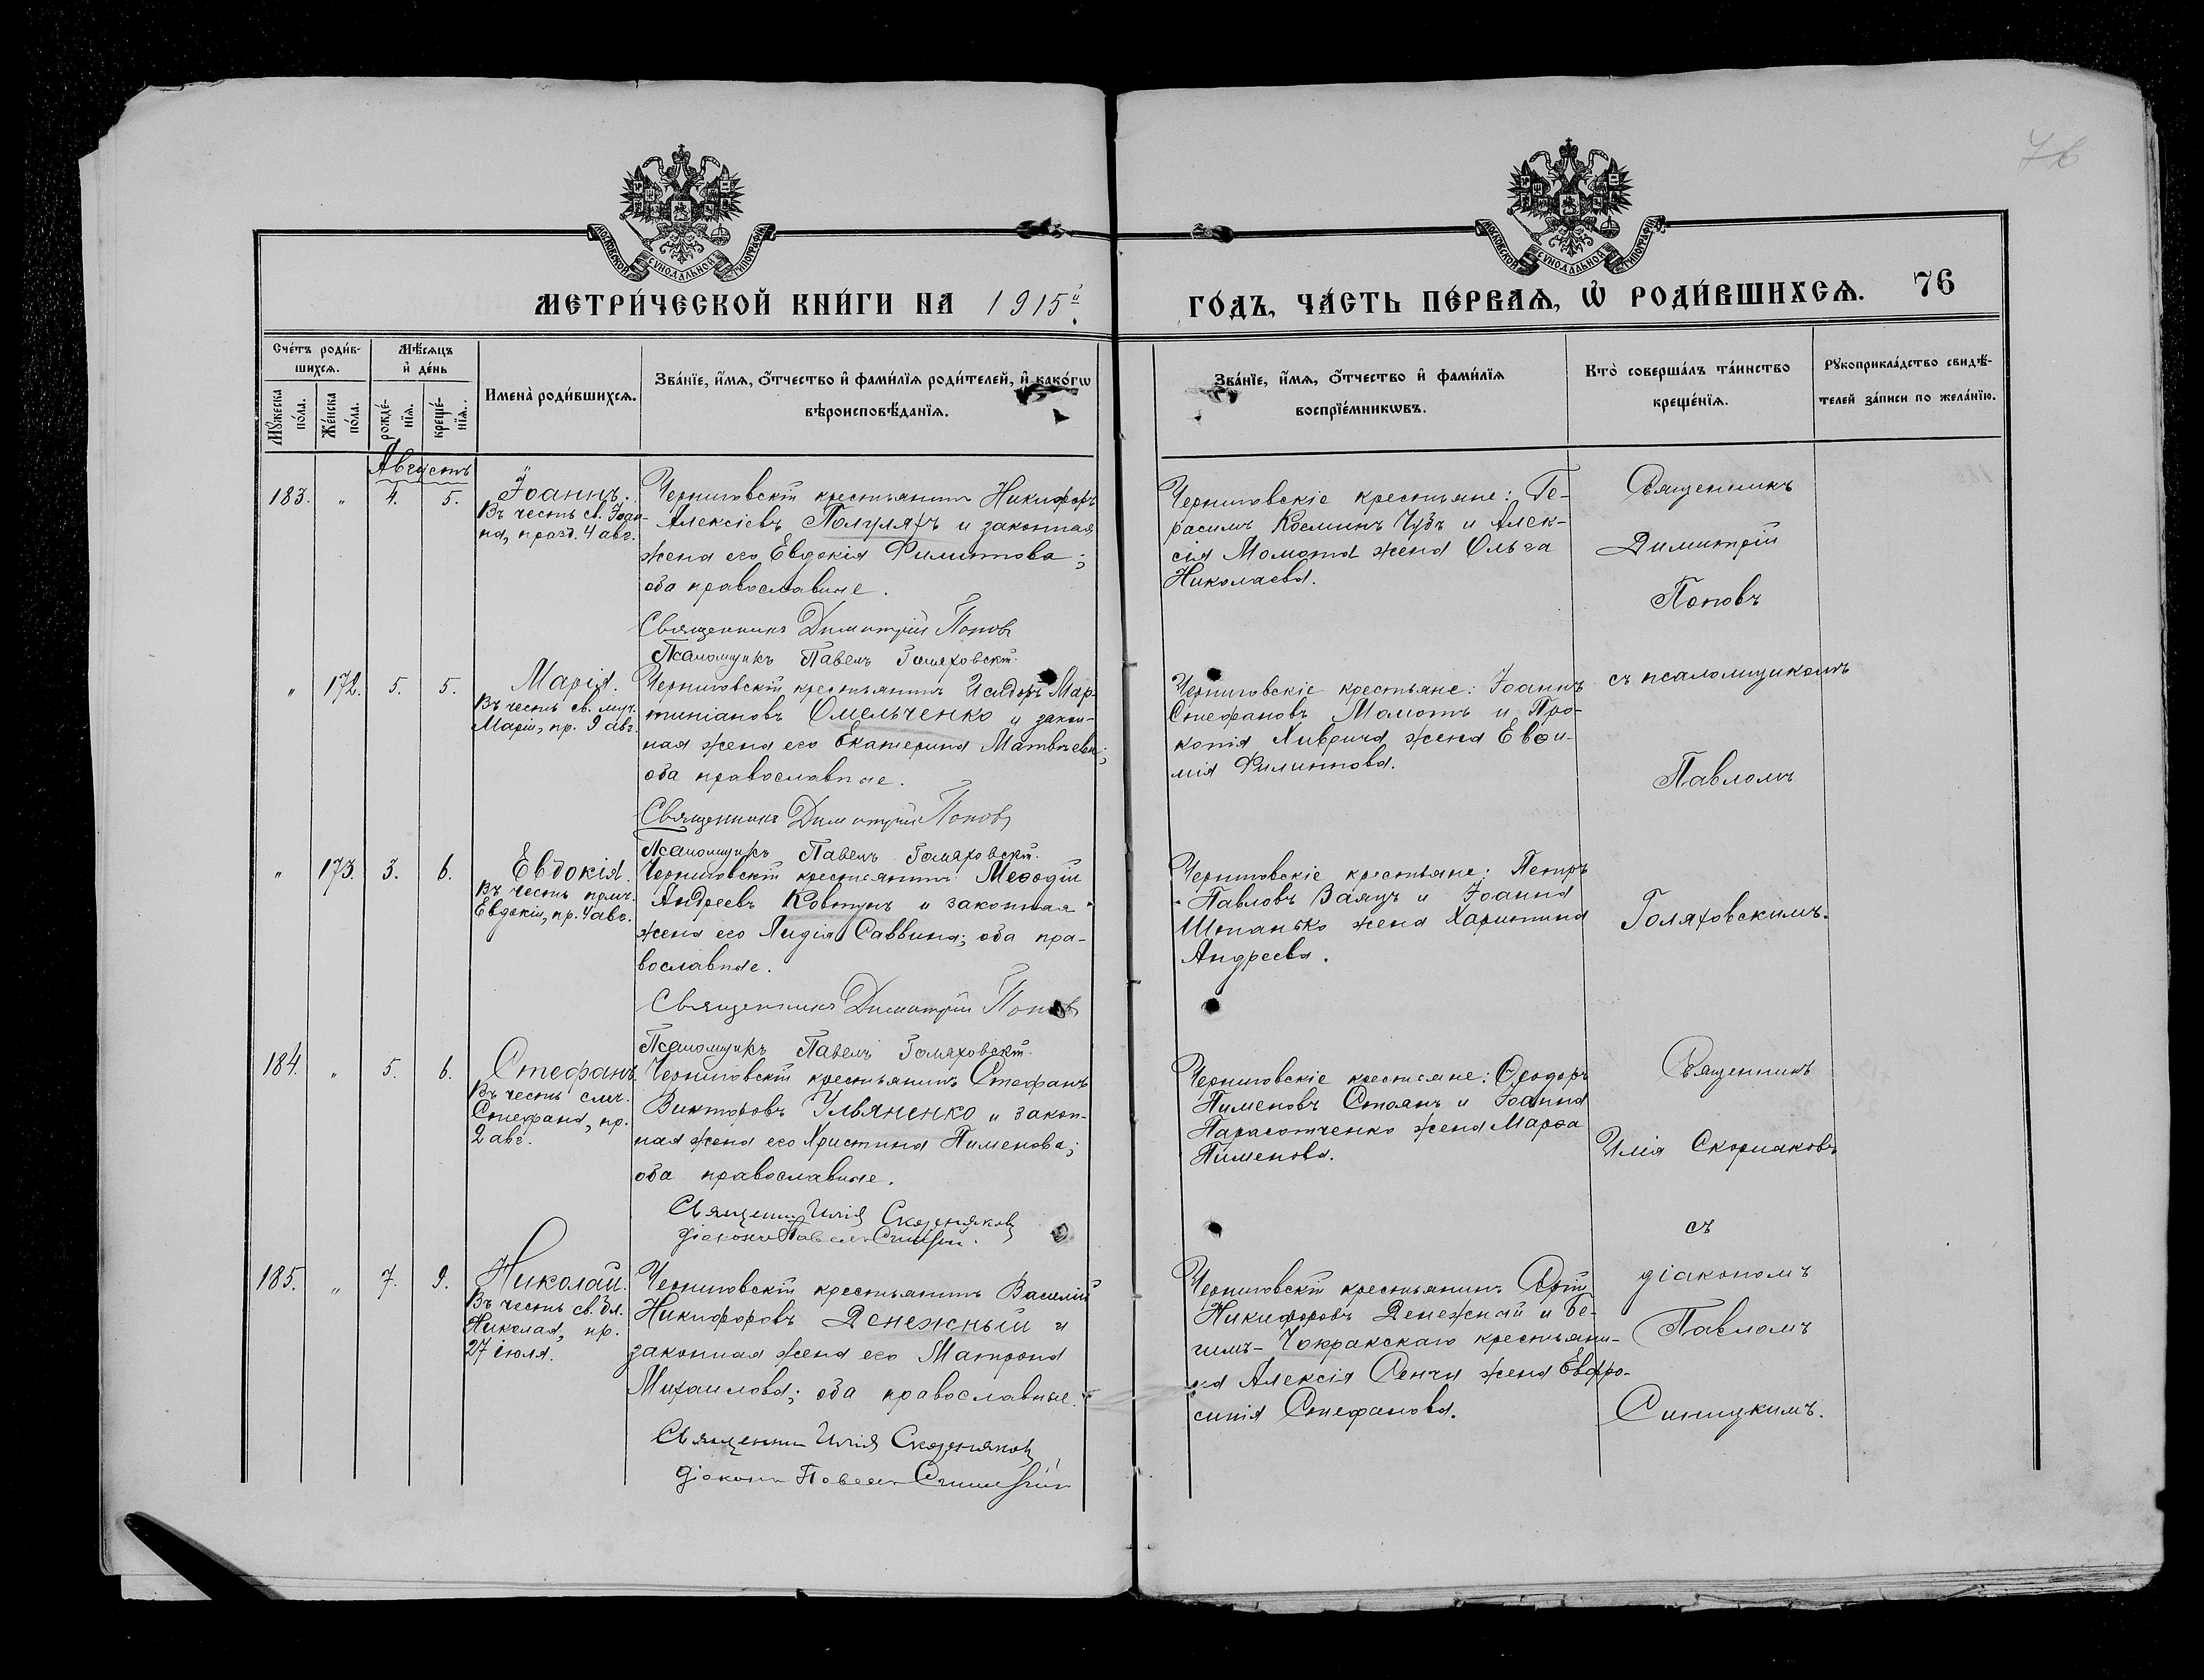 76
МОСКОВСКОЙ СУНОДАЛЬНОЙ ТИПОГРАФІИ
МОСКОВСКОЙ СУНОДАЛЬНОЙ ТИПОГРАФІИ
МЕТРИ́ЧЕСКОЙ КНИ́ГИ НА 1915й
ГО́ДЪ, ЧА́СТЬ ПЕ́РВАѦ, Ѡ҆ РОДИ́ВШИХСѦ. 76
Сче́тъ роди́в-
шихсѧ.
Мꙋ́жеска по́ла.
Же́нска по́ла.
Мѣ́сѧцъ
и҆ де́нь
рожде́-
нїѧ.
креще́-
нїѧ.
И҆мена̀ роди́вшихсѧ.
Зва́нїе, и҆́мѧ, ѻ҆́тчество и҆ фами́лїѧ роди́телей, и҆ како́гѡ
вѣроисповѣ́данїѧ.
Зва́нїе, и҆́мѧ, ѻ҆́тчество и҆ фами́лїѧ
воспрїе́мникѡвъ.
Кто̀ соверша́лъ та́инство
креще́нїѧ.
Рꙋкоприкла́дство свидѣ́-
телей за́писи по жела́нїю.
Августъ
183. " 4. 5.
Іоаннъ.
Въ честь св. Іоан-
на, празд. 4 авг.
Черниговскій крестьянинъ Никифоръ
Алексіевъ Полуляхъ и законная
жена его Евдокія Филиппова;
оба православные.
Священникъ Димитрій Поповъ
Псаломщикъ Павелъ Голяховскій.
Черниговскіе крестьяне: Ге-
расимъ Косминъ Чубъ и Алек-
сія Момота жена Ольга
Николаева.
Священникъ
Димитрій
Поповъ
" 172. 5. 5.
Марія.
Въ честь св. муч.
Маріи, пр. 9 авг.
Черниговскій крестьянинъ Исидоръ Мар-
тиніановъ Омельченко и закон-
ная жена его Екатерина Матвѣева;
оба православные.
Священникъ Димитрій Поповъ
Псаломщикъ Павелъ Голяховскій.
Черниговскіе крестьяне: Іоаннъ
Стефановъ Момотъ и Про-
копія жена Евѳи-
мія Филиппова.
съ псаломщикомъ
Павломъ
" 173. 3. 6.
Евдокія.
Въ честь прмч.
Евдокіи, пр. 4 авг.
Черниговскій крестьянинъ Меѳодій
Андреевъ Ковтунъ и законная
жена его Лидія Саввина; оба пра-
вославные.
Священникъ Димитрій Поповъ
Псаломщикъ Павелъ Голяховскій.
Черниговскіе крестьяне: Петръ
Павловъ Заяцъ и Іоанна
Штанько жена Харитина
Андреева.
Голяховскимъ.
184. " 5. 6.
Стефанъ.
Въ честь смч.
Стефана, пр.
2 авг.
Черниговскій крестьянинъ Стефанъ
Викторовъ Ульяненко и закон-
ная жена его Христина Пименова;
оба православные.
Священникъ Илія Скорняковъ
Діаконъ Павелъ
Черниговскіе крестьяне: Ѳеодоръ
Пименовъ Стоянъ и Іоанна
жена Марѳа
Пименова.
Священникъ
Илія Скорняковъ
съ
185. " 7. 9.
Николай.
Въ честь св. бл.
Николая, пр.
27 іюля.
Черниговскій крестьянинъ Василій
Никифоровъ Денежный и
законная жена его Матрона
Михаилова; оба православные.
Священникъ Илія Скорняковъ
Діаконъ Павелъ
Черниговскій крестьянинъ
Никифоровъ Денежный и Бе-
гимъ-Чокракскаго крестьяни-
на Алексія жена Евфро-
синія Стефанова.
діакономъ
Павломъ